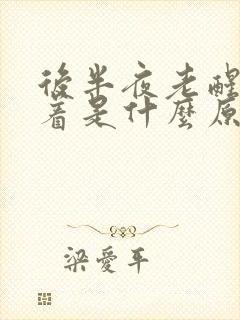 後半夜老醒
着是什麼原
梁愛平